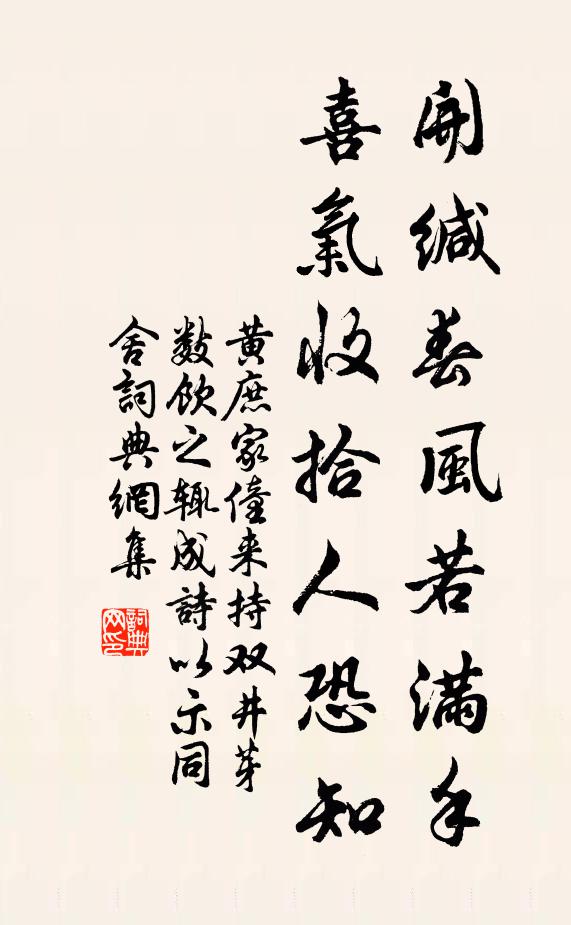 開緘春風若滿手
喜氣收拾人恐知
黄庶家僮来持双井芽
數飲之輒成詩以示同
舍詞典網集
詞典
网印